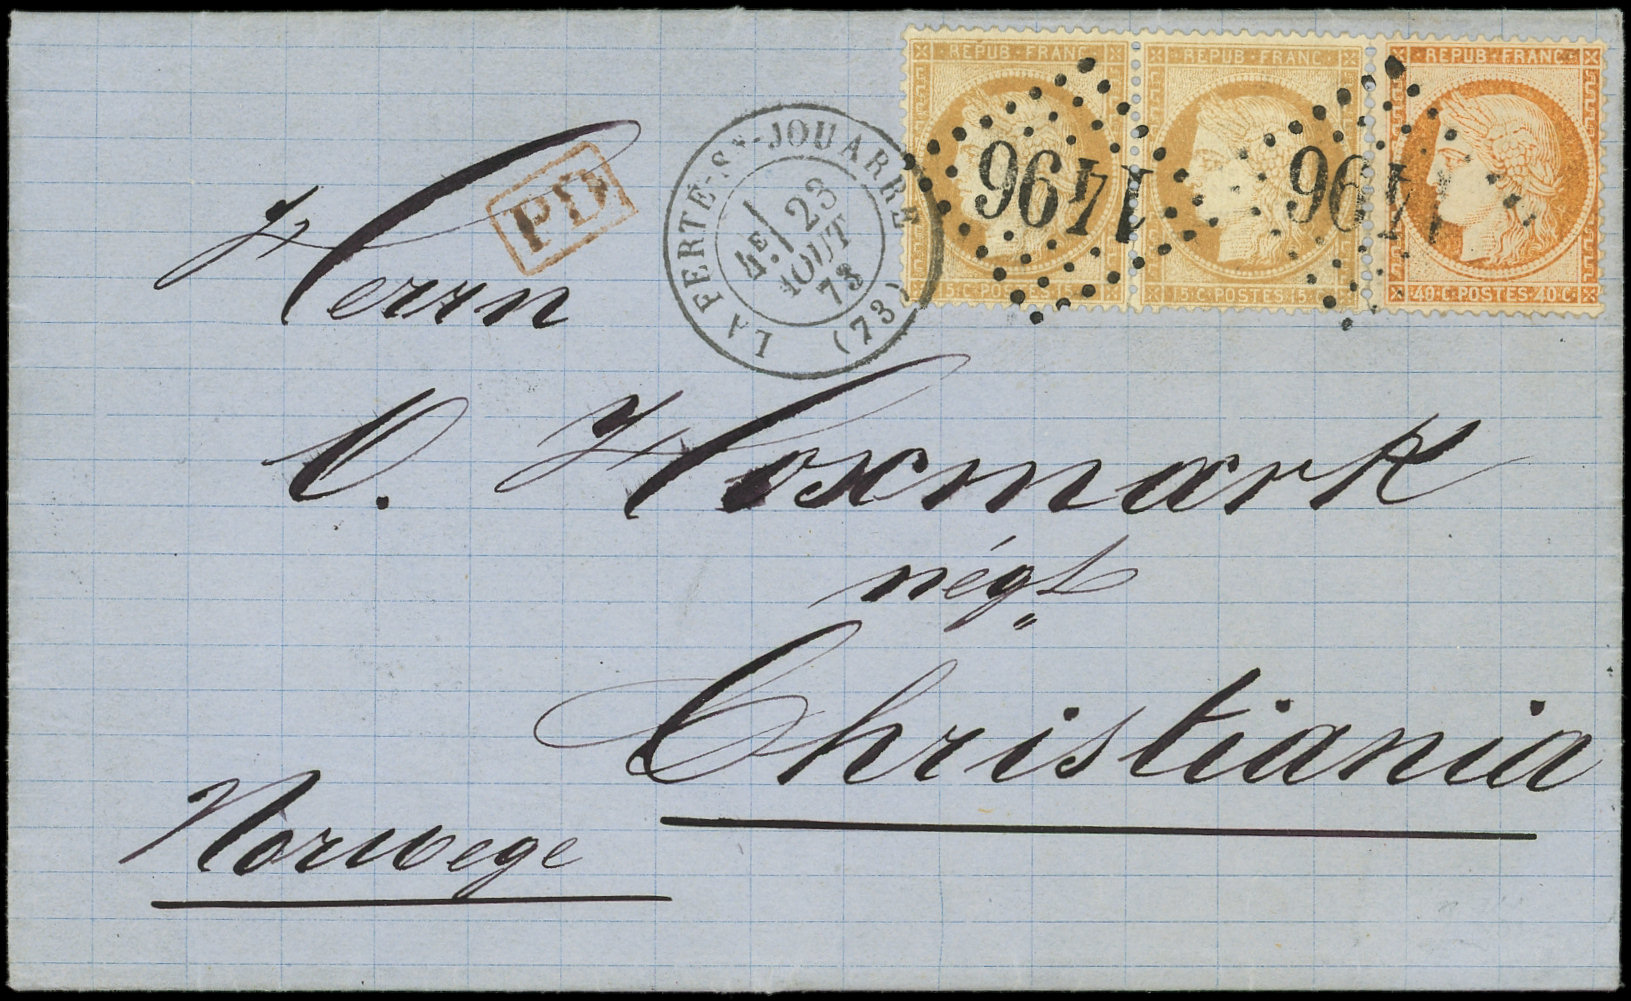 REPUB·FRANC·
REPUB·FRANC·
REPUB·FRANC·
1496
1496
15·C·POSTES·15·C
15·C·POSTES·15·C
40·C·POSTES·40·C·
LA FERTÉ-S-S-JOUARRE (73)
4E 23
AOUT
73
PD
Herrn
O. Hoxmark
négt
Christiania
Norwege